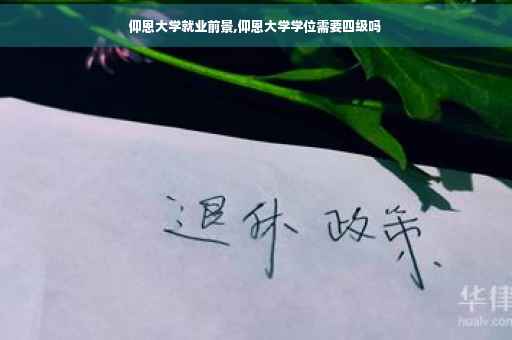 仰恩大学就业前景,仰恩大学学位需要四级吗
退休 政策
华律
hualv.com